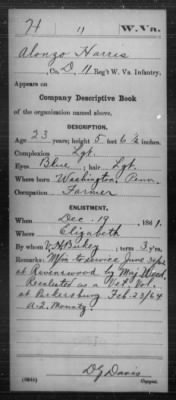 H 11 W. Va.
Alonzo Harris
, Co. D, 11 Reg't W. Va. Infantry.
Appears on
Company Descriptive Book
of the organization named above.
DESCRIPTION.
Age 23 years; height 5 feet 6 ½ inches.
Complexion Lgt.
Eyes Blue; hair Lgt.
Where born Washington, Penn
Occupation Farmer
ENLISTMENT.
When Dec. 19, 1861.
Where Elizabeth
By whom ; term 3 y'rs.
Remarks: M/in to service June 30/62
at Ravenswood by Maj
Reenlisted as a Vet. Vol.
at Parkersburg Feb. 23/64
D J Davis
Copyist.